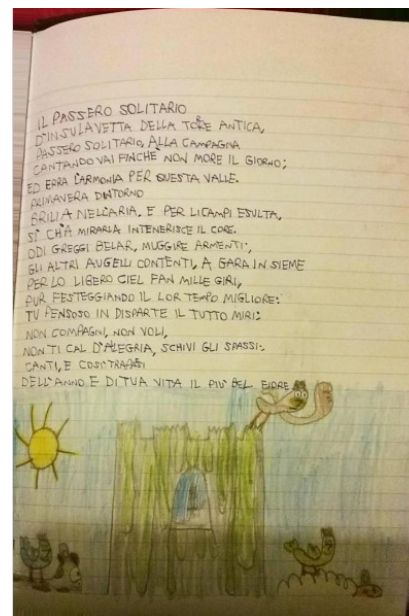 IL PASSERO SOLITARIO
D'INSULAVETTA DELLA TORE ANTICA,
PASSERO SOLITARIO, ALLA CAMPAGNA
CANTANDO VAI FINCHÈ NON MORE IL GIORNO;
ED ERRA L'ARMONIA PER QUESTA VALLE.
PRIMAVERA DINTORNO
BRILIA NELL'ARIA, E PER LICAMPI ESULTA,
SÌ CH'A MIRARLA INTENERISCE IL CORE.
ODI GREGGI BELAR, MUGGIRE ARMENTI;
GLI ALTRI AUGELLI CONTENTI, A GARA INSIEME
PER LO LIBERO CIEL FAN MILLE GIRI,
PUR FESTEGGIANDO IL LOR TEMPO MIGLIORE:
TU PENSOSO IN DISPARTE IL TUTTO MIRI:
NON COMPAGNI, NON VOLI,
NON TI CAL D'ALEGRIA, SCHIVI GLI SPASSI:
CANTI, E COSÌ TRAPASSI
DELL'ANNO E DI TUA VITA IL PIÙ BEL FIORE